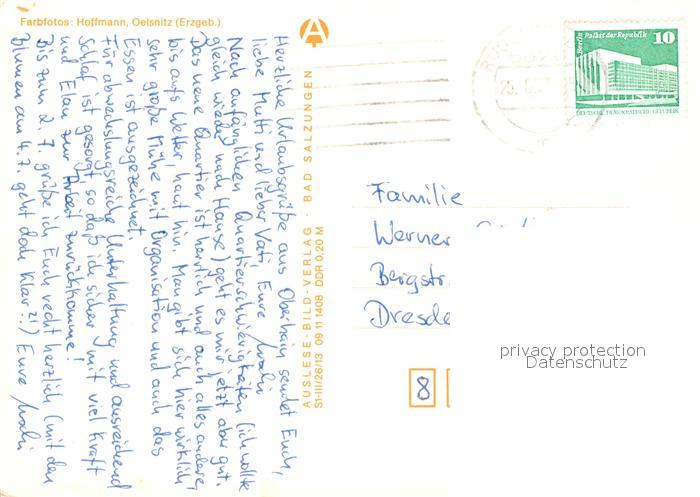 Farbfotos: Hoffmann, Oelsnitz (Erzgeb.)
Herzliche Urlaubsgrüße aus Oberhain sendet Euch,
liebe Mutti und lieber Vati, Eure
Nach anfänglichen Quartierschwierigkeiten (ich wollte
gleich wieder nach Hause) geht es mir jetzt aber gut.
Das neue Quartier ist herrlich und auch alles andere,
bis aufs Wetter, haut hin. Man gibt sich hier wirklich
sehr große Mühe mit Organisation und auch das
Essen ist ausgezeichnet.
Für abwechslungsreiche Unterhaltung und ausreichend
Schlaf ist gesorgt, so daß ich sicher mit viel Kraft
und Elan zur Arbeit zurückkomme!
Bis zum 2. 7. grüße ich Euch recht herzlich (mit den
Blumen am 4. 7. geht doch klar?!) Eure
AUSLESE-BILD-VERLAG · BAD SALZUNGEN
S1-III/26/13 09 11 1408 DDR 0,20 M
Berlin Palast der Republik 10
DEUTSCHE DEMOKRATISCHE REPUBLIK
Familie
Werner
Bergstr.
Dresde
8
privacy protection
Datenschutz